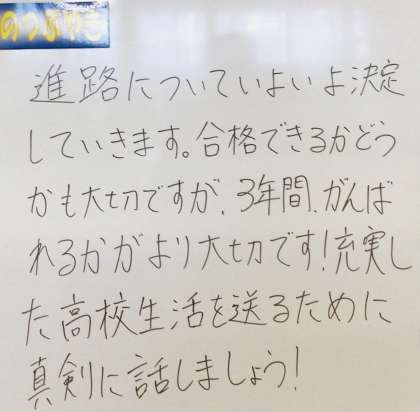 のつぶやき
進路についていよいよ決定
していきます。合格できるかどう
かも大切ですが、3年間、がんば
れるかがより大切です!充実し
た高校生活を送るために
真剣に話しましょう!